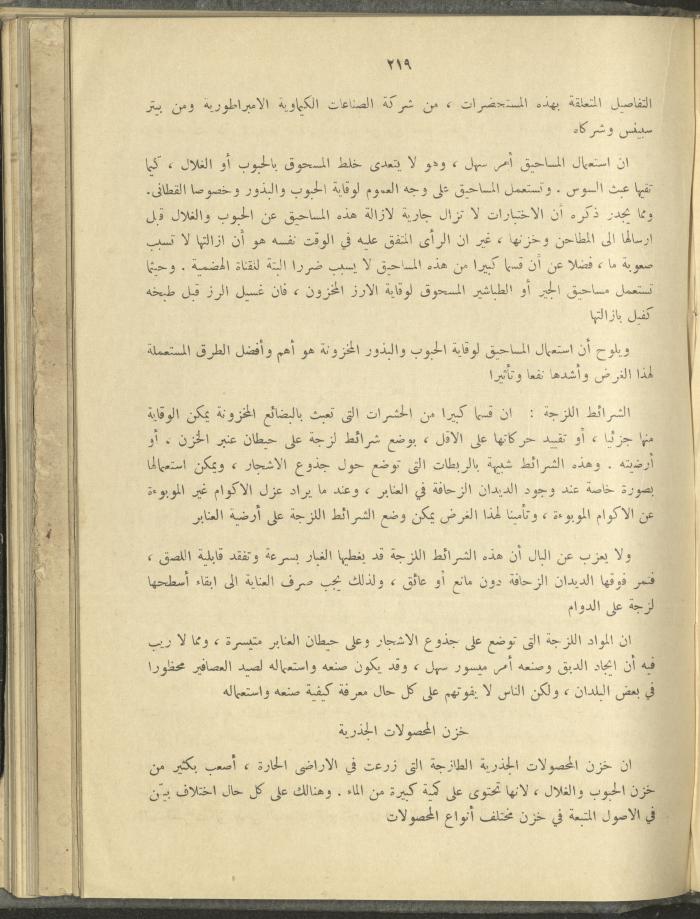 ٢١٩
التفاصيل المتعلقة بهذه المستحضرات ، من شركة الصناعات الكيماوية الامبراطورية ومن بيتر
سبينس وشركاه
ان استعمال المساحيق أمر سهل ، وهو لا يتعدى خلط المسحوق بالحبوب أو الغلال ، كيما
تقيها عبث السوس . وتستعمل المساحيق على وجه العموم لوقاية الحبوب والبذور وخصوصا القطانى.
ومما يجدر ذكره أن الاختبارات لا تزال جارية لازالة هذه المساحيق عن الحبوب والغلال قبل
ارسالها الى المطاحن وخزنها ، غير ان الرأى المتفق عليه في الوقت نفسه هو أن ازالتها لا تسبب
صعوبة ما ، فضلا عن أن قسما كبيرا من هذه المساحيق لا يسبب ضررا البتة للقناة الهضمية . وحيثما
تستعمل مساحيق الجير أو الطباشير المسحوق لوقاية الارز المخزون ، فان غسيل الرز قبل طبخه
كفيل بازالتها
ويلوح أن استعمال المساحيق لوقاية الحبوب والبذور المخزونة هو أهم وأفضل الطرق المستعملة
لهذا الغرض وأشدها نفعا وتأثيرا
الشرائط اللزجة : ان قسما كبيرا من الحشرات التى تعبث بالبضائع المخزونة يمكن الوقاية
منها جزئيا ، أو تقييد حركاتها على الاقل ، بوضع شرائط لزجة على حيطان عنبر الخزن . أو
أرضيته . وهذه الشرائط شبيهة بالربطات التى توضع حول جذوع الاشجار ، ويمكن استعمالها
بصورة خاصة عند وجود الديدان الزحافة في العنابر ، وعند ما يراد عزل الاكوام غير الموبوءة
عن الاكوام الموبوءة ، وتأمينا لهذا الغرض يمكن وضع الشرائط اللزجة على أرضية العنابر
ولا يعزب عن البال أن هذه الشرائط اللزجة قد يغطيها الغبار بسرعة وتفقد قابلية اللصق ،
فتمر فوقها الديدان الزحافة دون مانع أو عائق ، ولذلك يجب صرف العناية الى ابقاء أسطحها
لزجة على الدوام
ان المواد اللزجة التى توضع على جذوع الاشجار وعلى حيطان العنابر متيسرة ، ومما لا ريب
فيه أن ايجاد الدبق وصنعه أمر ميسور سهل ، وقد يكون صنعه واستعماله لصيد العصافير محظورا
في بعض البلدان ، ولكن الناس لا يفوتهم على كل حال معرفة كيفية صنعه واستعماله
خزن المحصولات الجذرية
ان خزن المحصولات الجذرية الطازجة التى زرعت في الاراضى الحارة ، أصعب بكثير من
خزن الحبوب والغلال ، لانها تحتوى على كمية كبيرة من الماء . وهنالك على كل حال اختلاف بيّن
في الاصول المتبعة في خزن مختلف أنواع المحصولات